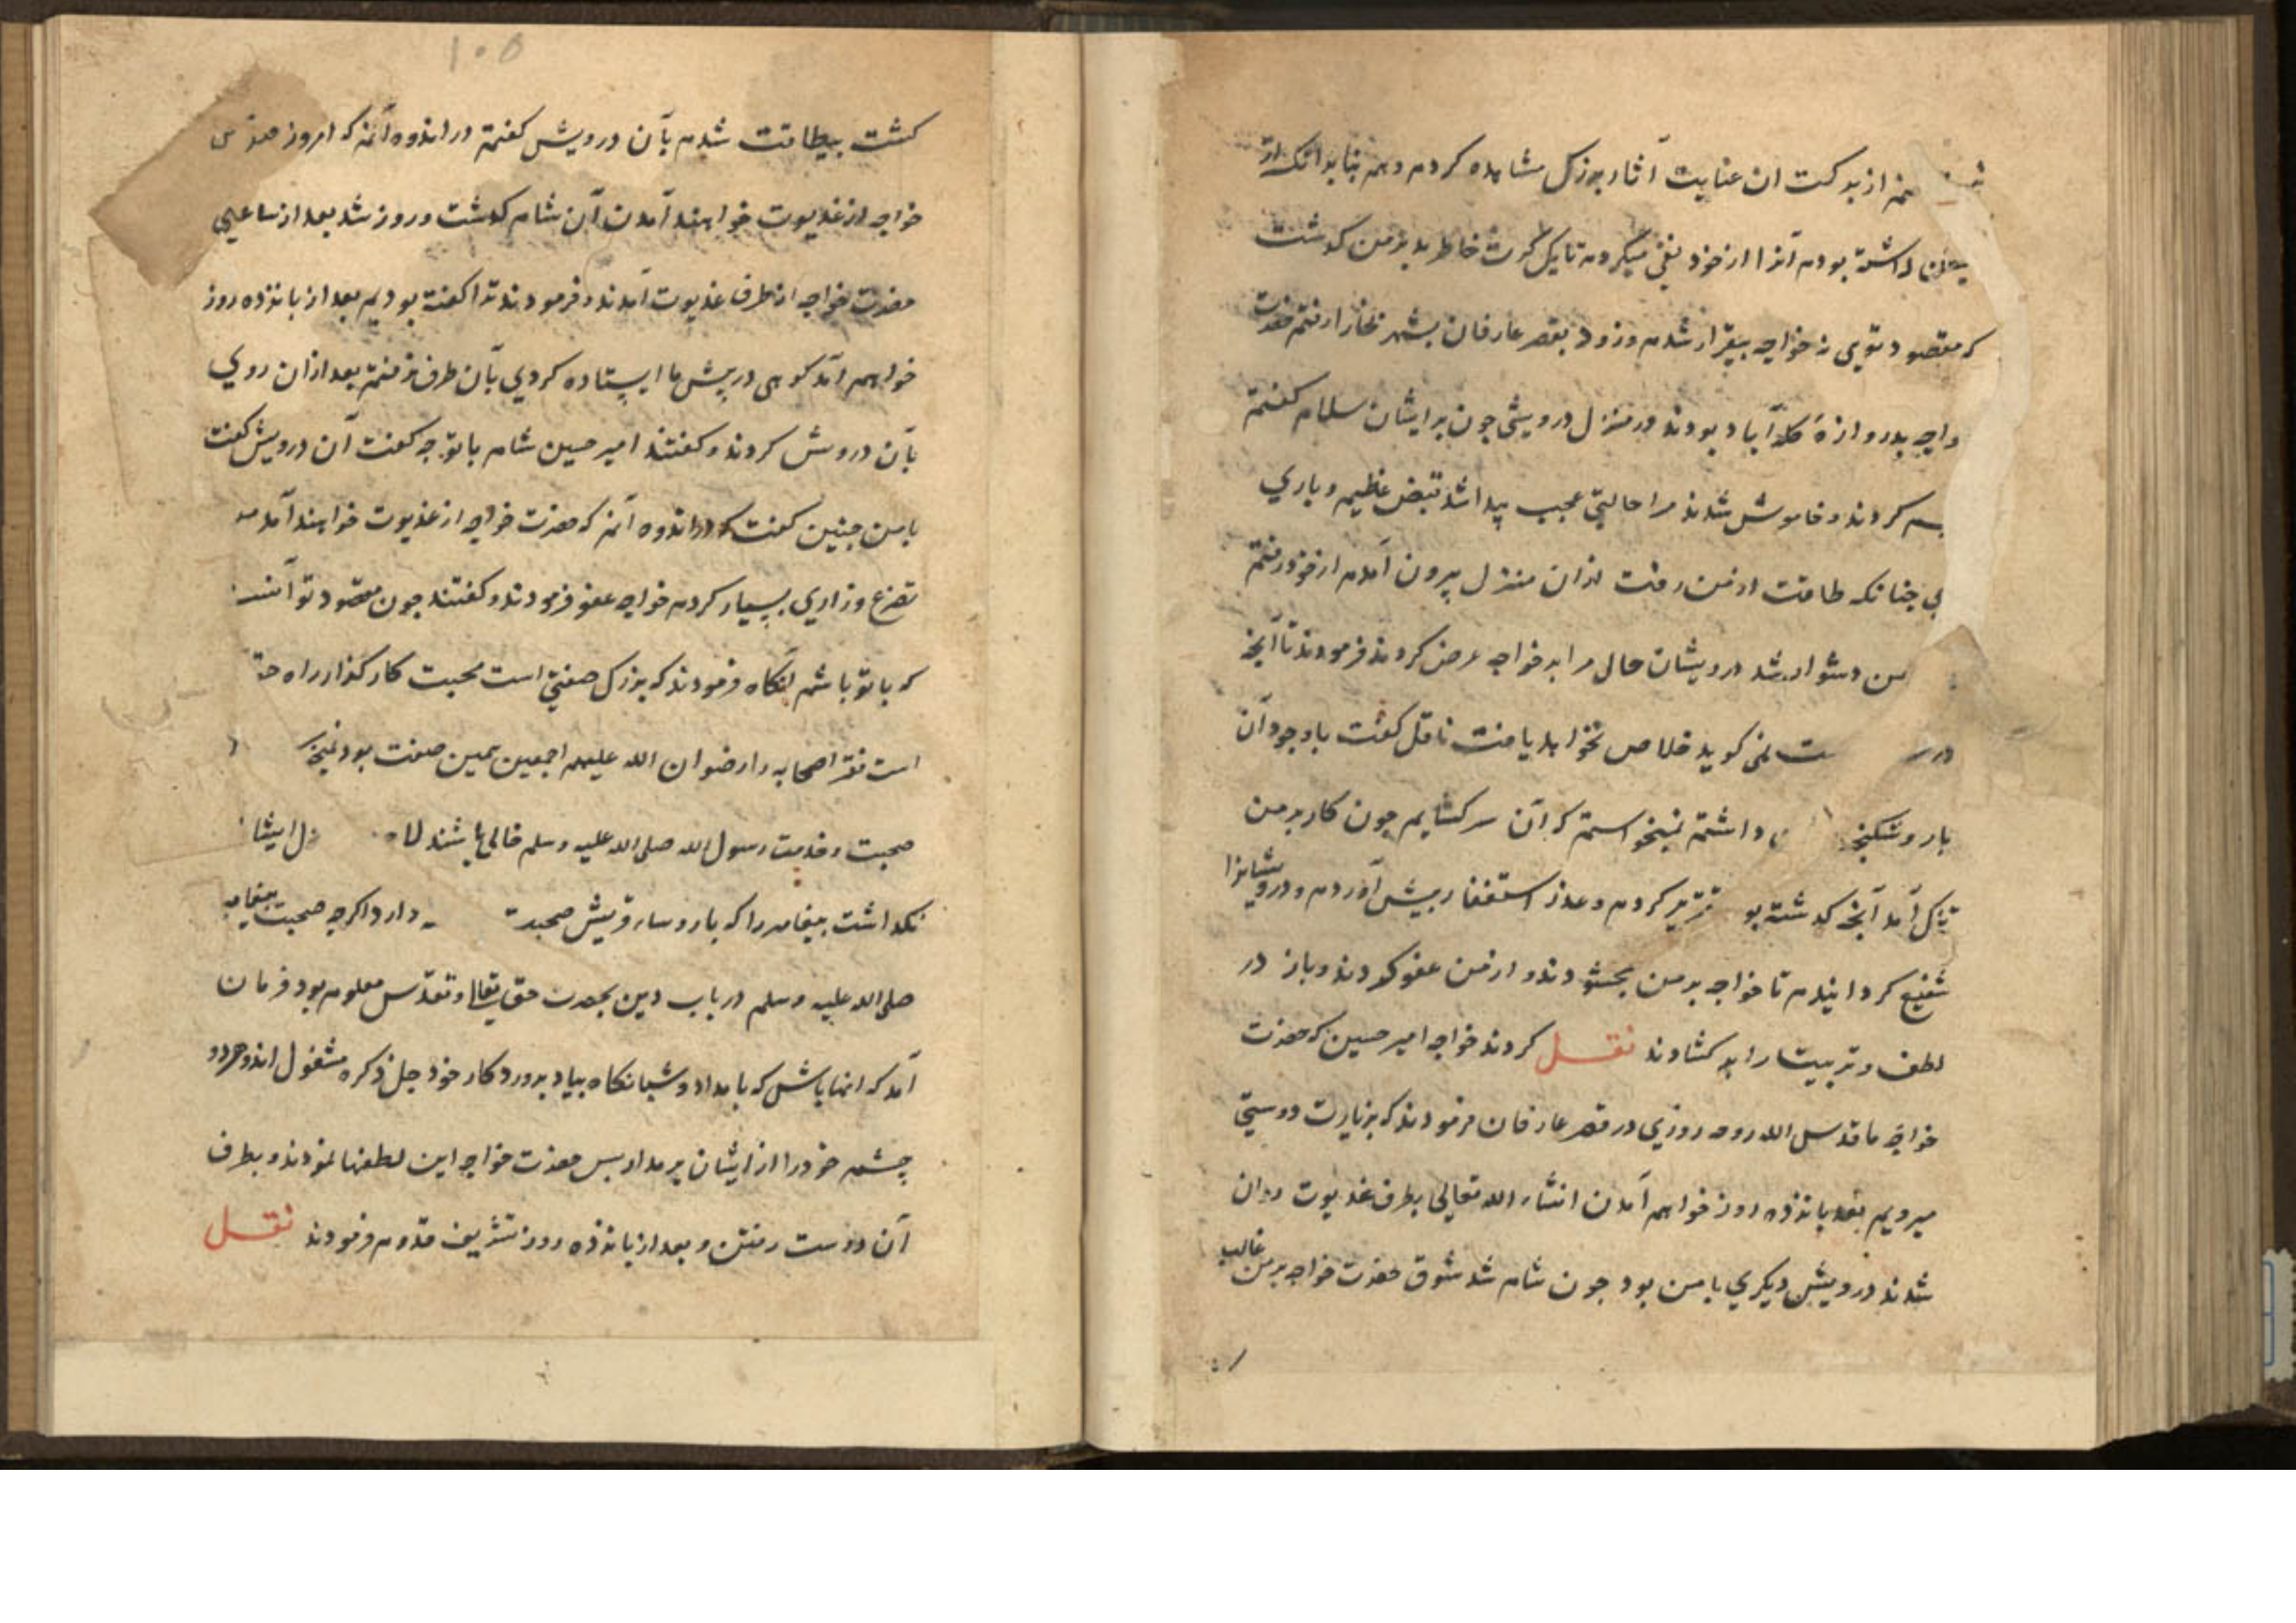 از برکت ان عنایت آثار بزرک مشاهده کردم وهم بنا بدانک از
داشته بودم آنرا از خود نفی میکردم تا یک کرت خاطر بد بر من کدشت
که مقصود تویی نه خواجه بیقرار شدم وزود بقصر عارفان بشهر بخارا رفتم حضرت
واجه بدروازهٔ کلاآباد بودند در منزل درویشی جون برایشان سلام کفتم
سم کردند وخاموش شدند مرا حالتی عجیب پیدا شد قبض عظیم و باری
چنانکه طاقت از من رفت ازان منزل بیرون آمدم از خود رفتم
من دشوار شد درویشان حال مرا بر خواجه عرض کردند فرمودند تا آنچه
در ست نمی کوید خلاص نخواهد یافت ناقل کفت باوجود آن
بار وشکنجه داشتم نمیخواستم که آن سر کشایم جون کار بر من
تنک آمد آنچه کدشته بو تقریر کردم وعذر استغفار پیش آوردم ودرویشانرا
شفیع کردانیدم تا خواجه بر من بخشودند و از من عفو کردند وباز در
لطف وتربیت را بر کشادند نقل کردند خواجه امیر حسین که حضرت
خواجه ما قدس الله روحه روزی در قصر عارفان فرمودند که بزیارت دوستی
میرویم بعد پانزده روز خواهم آمدن انشاء الله تعالی بطرف غدیوت روان
شدند درویش دیکری با من بود جون شام شد شوق حضرت خواجه بر من غالب
۱۰۵
کشت بیطاقت شدم بآن درویش کفتم در اندوه آنم که امروز
خواجه از غدیوت خواهند آمدن آن شام کدشت وروز شد بعد از ساعتی
حضرت خواجه از طرف غدیوت آمدند وفرمودند ترا کفته بودیم بعد از پانزده روز
خواهم آمد کوهی در پیش ما ایستاده کردی بآن طرف نرفتم بعد ازان روی
بآن دروش کردند وکفتند امیر حسین شام با تو چه کفت آن درویش کفت
با من چنین کفت که در اندوه آنم که حضرت خواجه از غدیوت خواهند آمد
تضرع وزاری بسیار کردم خواجه عفو فرمودند وکفتند جون مقصود تو
که با تو باشم آنکاه فرمودند که بزرک صفتی است محبت کار کذار راه
است فقر اصحابه را رضوان الله علیهم اجمعین همین صفت بود
صحبت وخدمت رسول الله صلی الله علیه وسلم خالی باشند
نکداشت پیغامبر را که با روساء قریش صحبت دارد اکرچه صحبت پیغامبر
صلی الله علیه وسلم در باب دین بحضرت حق تعالی وتقدس معلوم بود فرمان
آمد که انها باش که بامداد وشبانکاه بیاد پروردکار خود جل ذکره مشغول اند وهردو
چشم خود را از ایشان بر مدار پس حضرت خواجه این لطفها نمودند وبطرف
آن دوست رفتن و بعد از پانزده روز تشریف قدوم فرمودند نقل